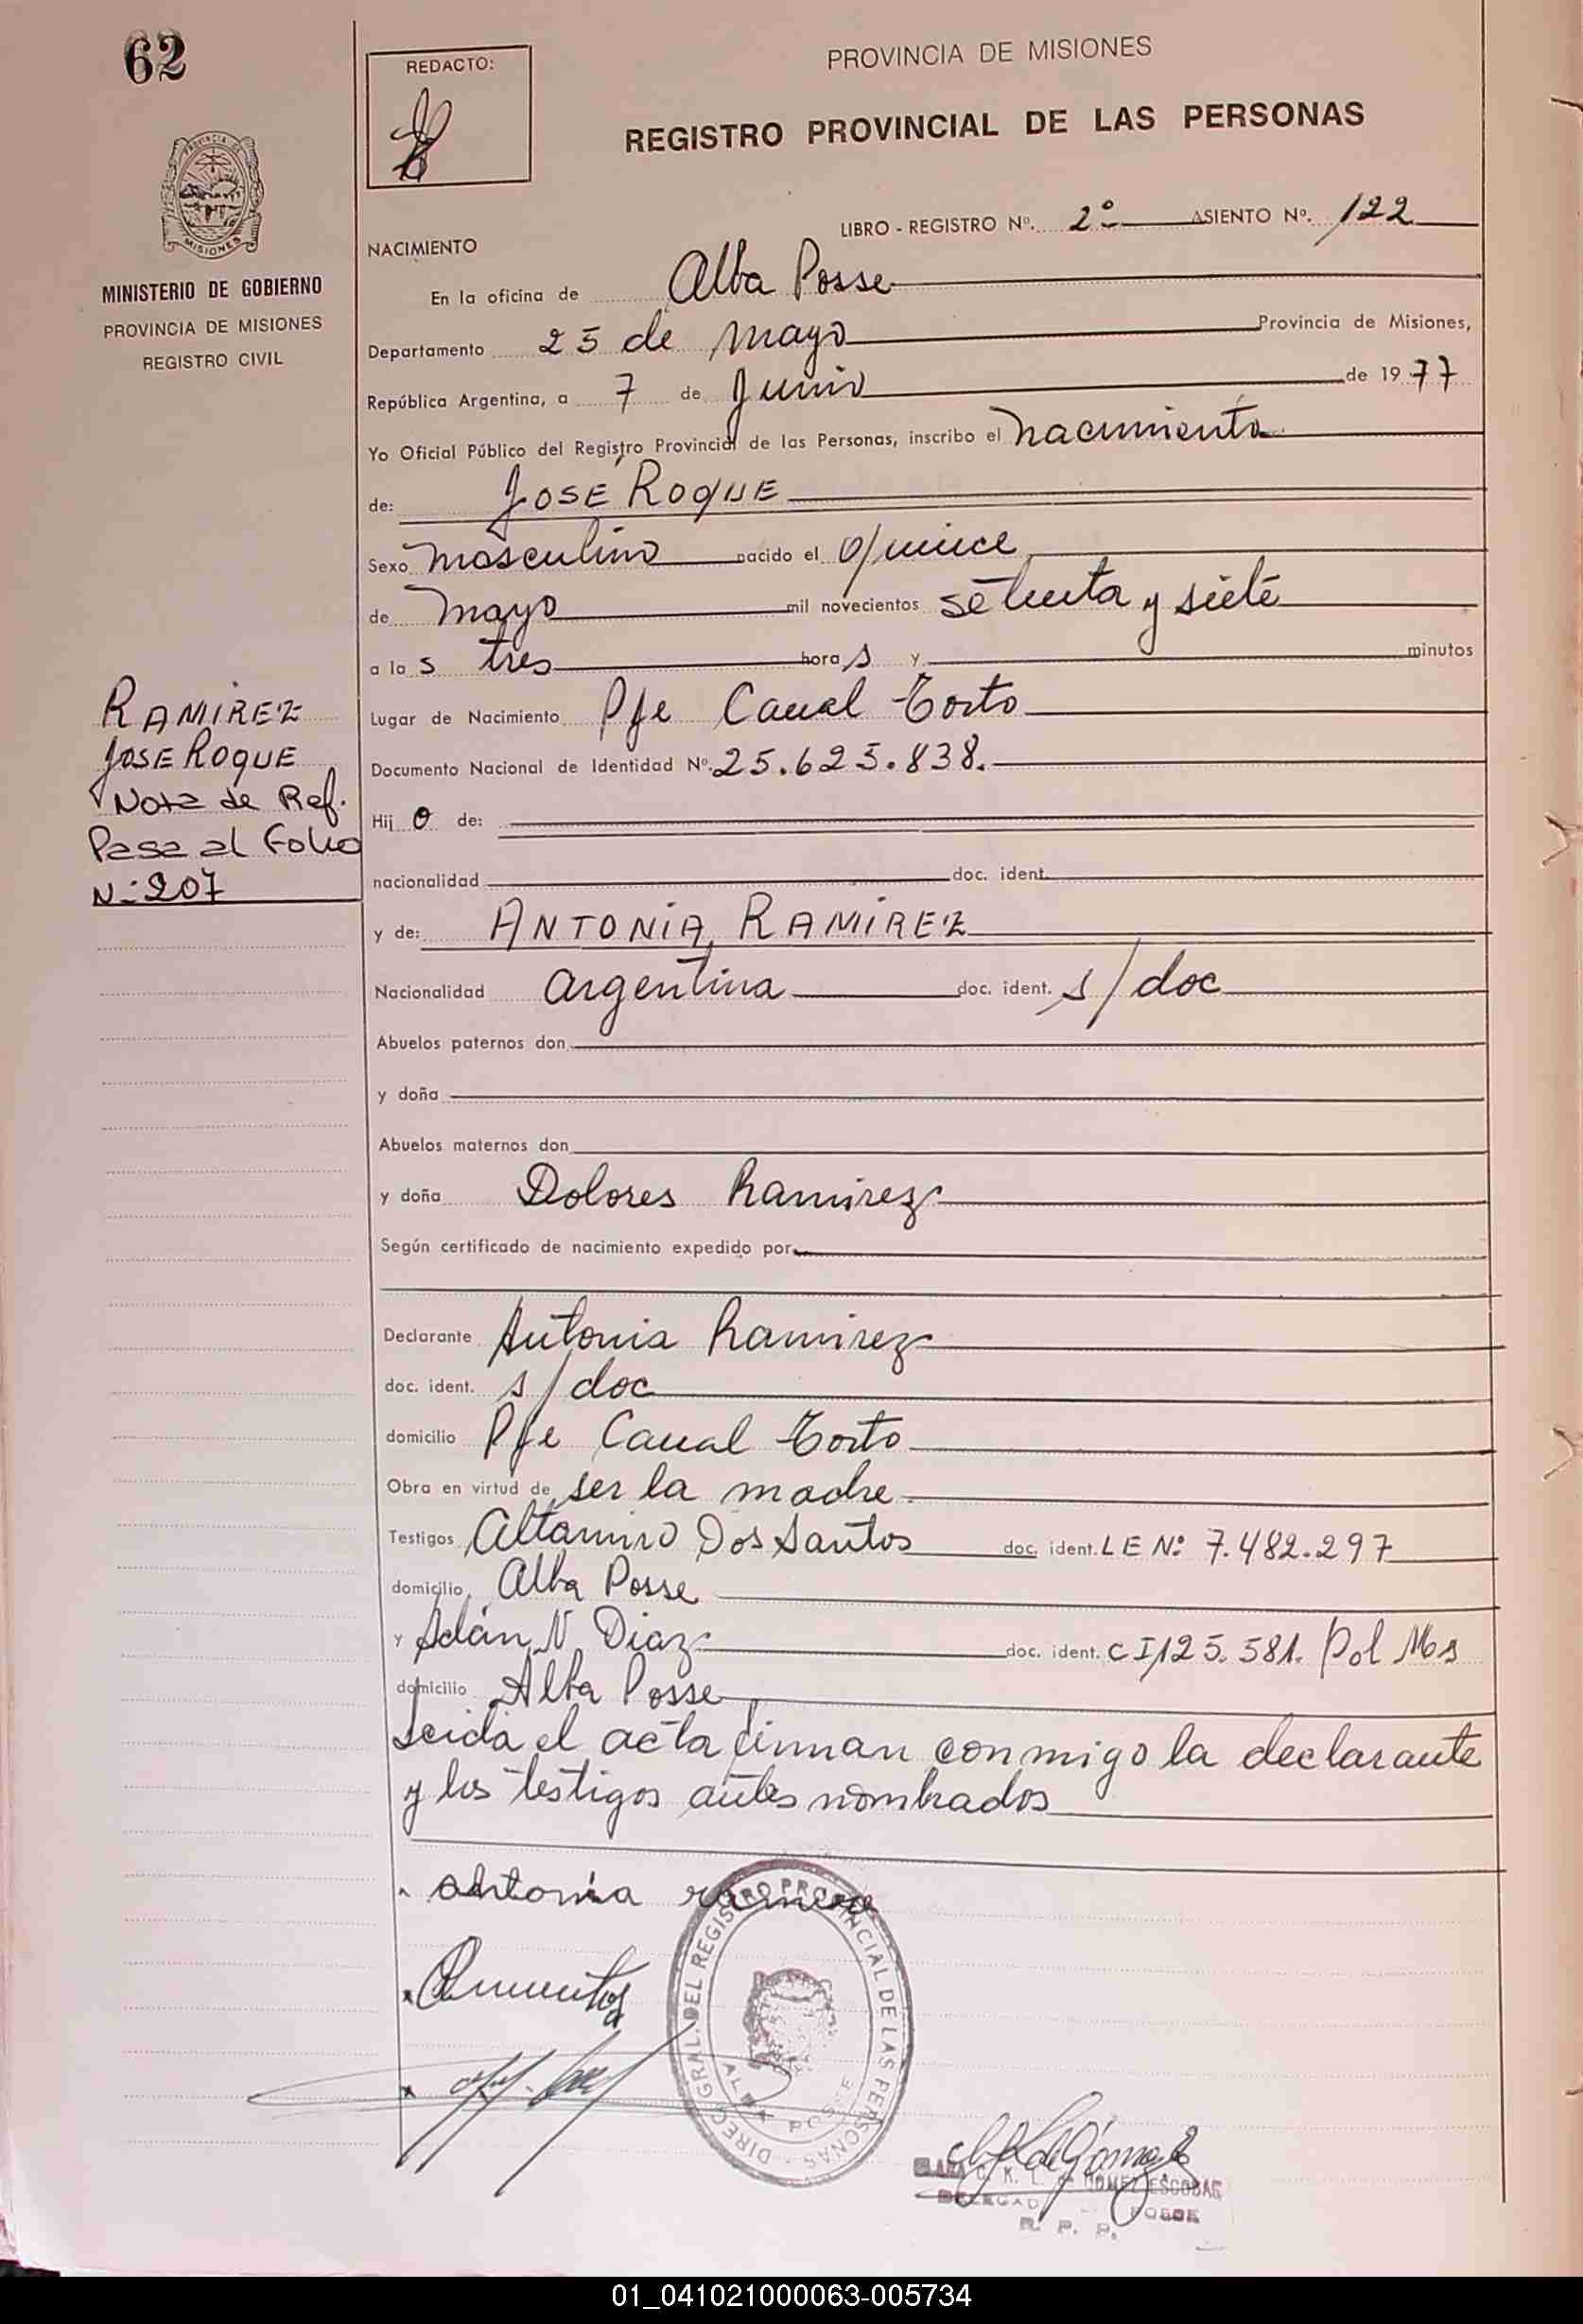 62
REDACTO:
PROVINCIA DE MISIONES
REGISTRO PROVINCIAL DE LAS PERSONAS
LIBRO - REGISTRO Nº. 2º ASIENTO Nº. 122
MISIONES
MINISTERIO DE GOBIERNO
PROVINCIA DE MISIONES
REGISTRO CIVIL
NACIMIENTO
En la oficina de Alba Posse
Departamento 25 de mayo Provincia de Misiones,
República Argentina, a 7 de Junio de 1977
Yo Oficial Público del Registro Provincial de las Personas, inscribo el nacimiento
de: JOSÉ ROQUE
Sexo masculino nacido el quince
de mayo mil novecientos setenta y siete
a las tres horas y minutos
Lugar de Nacimiento Pje Canal Torto
Documento Nacional de Identidad Nº. 25.625.838.
Hijo de:
nacionalidad doc. ident.
y de: ANTONIA RAMIREZ
Nacionalidad argentina doc. ident. s/doc
Abuelos paternos don
y doña
Abuelos maternos don
y doña Dolores Ramirez
Según certificado de nacimiento expedido por
Declarante Antonia Ramirez
doc. ident. s/doc
domicilio Pje Canal Torto
Obra en virtud de ser la madre
Testigos Altamiro Dos Santos doc. ident. LE Nº 7.482.297
domicilio Alba Posse
y Adán N. Diaz doc. ident. CI 125.581. Pol Mns
domicilio Alba Posse
Leida el acta firman conmigo la declarante
y los testigos antes nombrados
RAMIREZ
JOSE ROQUE
Nota de Ref.
Pasa al Folio
N:207
antonia ramirez
DIREC. GRAL. DEL REGISTRO PROVINCIAL DE LAS PERSONAS
ALBA POSSE
GOMEZ ESCOBAR
POSSE
R. P. P.
01_041021000063-005734